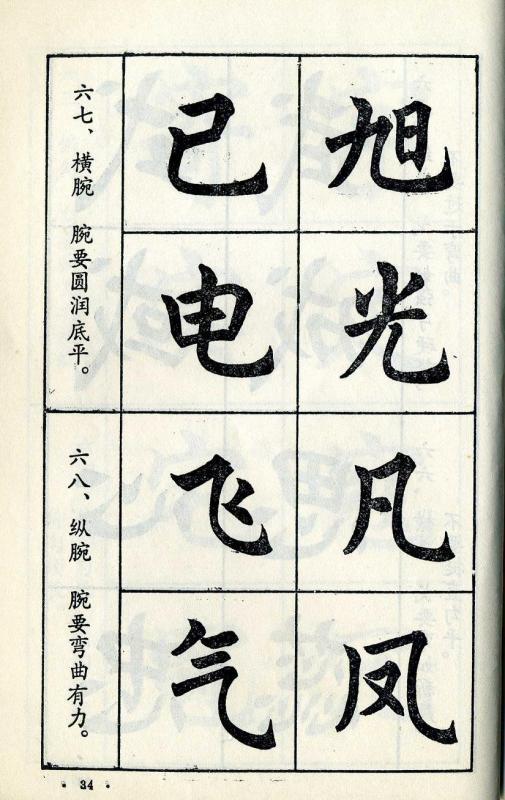 旭光凡凤
己电飞气
六七、横腕 腕要圆润底平。
六八、纵腕 腕要弯曲有力。
· 34 ·